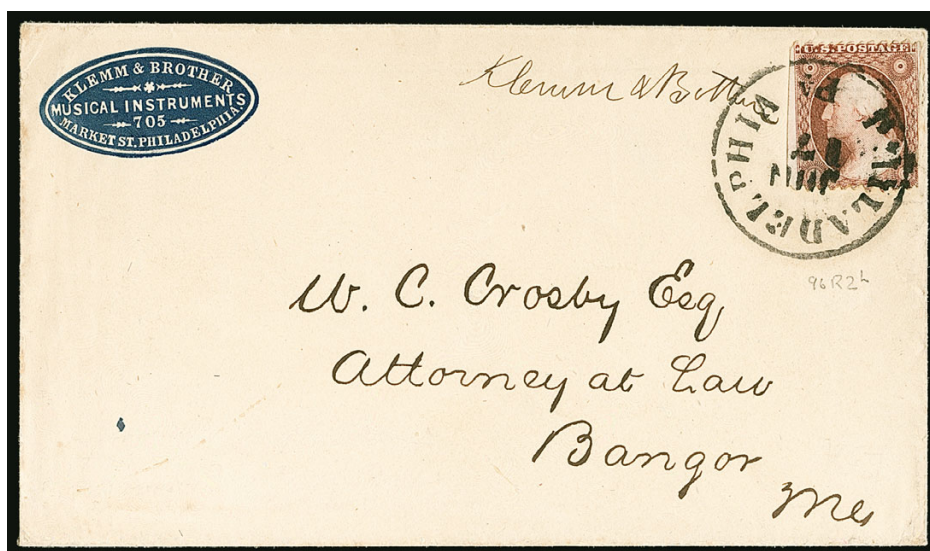 KLEMM & BROTHER
MUSICAL INSTRUMENTS
705
MARKET ST, PHILADELPHIA
Klemm & Brother
U.S. POSTAGE
PHILADELPHIA
PA
JUN
96R2L
W. C. Crosby Esq
Attorney at Law
Bangor
Me